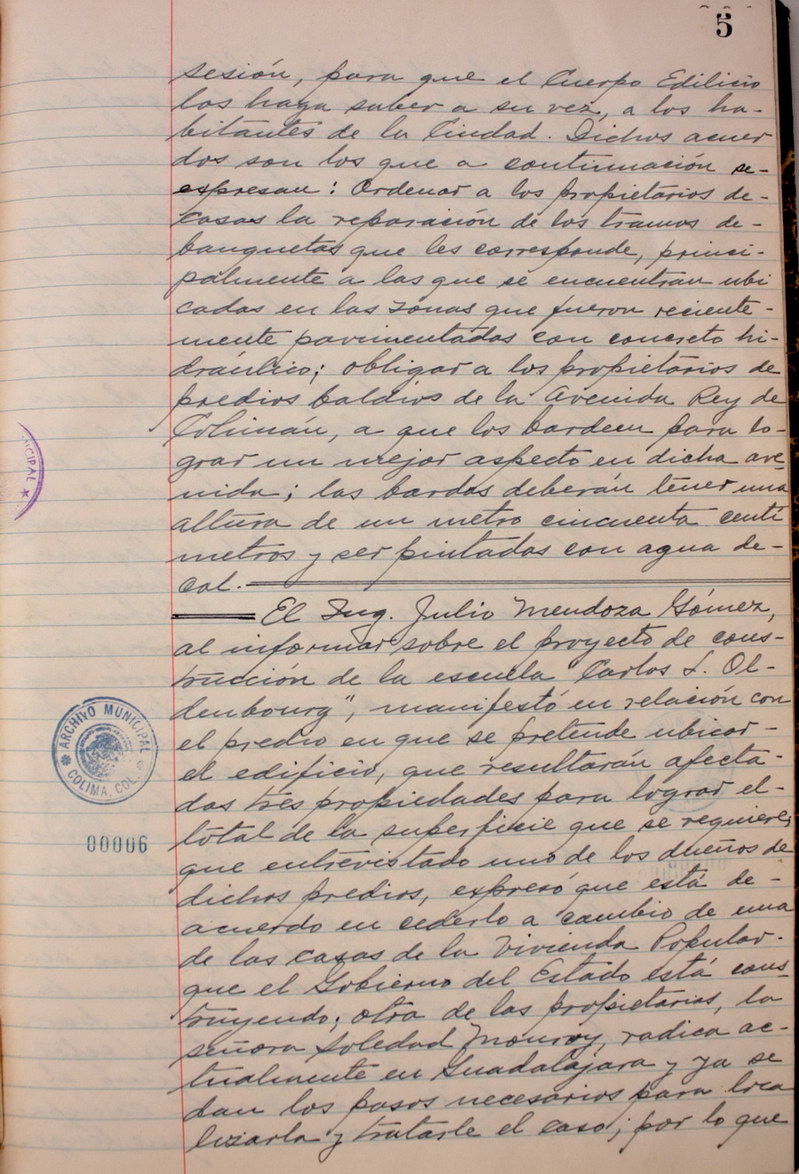 5
sesión, para que el Cuerpo Edilicio
los haga saber a su vez, a los ha-
bitantes de la Ciudad. Dichos acuer
dos son los que a continuación se-
expresan: Ordenar a los propietarios de-
casas la reparación de los tramos de-
banquetas que les corresponde, princi-
palmente a las que se encuentran ubi
cadas en las zonas que fueron reciente-
mente pavimentadas con concreto hi-
dráulico; obligar a los propietarios de
predios baldíos de la Avenida Rey de
Colimán, a que los bardeen para lo-
grar un mejor aspecto en dicha ave
nida; las bardas deberán tener una
altura de un metro cincuenta centí
metros y ser pintadas con agua de-
cal.
El Ing. Julio Mendoza Gómez,
al informar sobre el proyecto de cons-
trucción de la escuela Carlos L. Ol-
denbourg", manifestó en relación con
el predio en que se pretende ubicar-
el edificio, que resultarán afecta-
das tres propiedades para lograr el-
total de la superficie que se requiere;
que entrevistado uno de los dueños de
dichos predios, expresó que está de-
acuerdo en cederlo a cambio de una
de las casas de la Vivienda Popular-
que el Gobierno del Estado está cons
truyendo; otra de las propietarias, la
señora Soledad Monroy, radica ac-
tualmente en Guadalajara y ya se
dan los pasos necesarios para loca
lizarla y tratarle el caso; por lo que
NCIPAL
ARCHIVO MUNICIPAL
COLIMA, COL.
00006